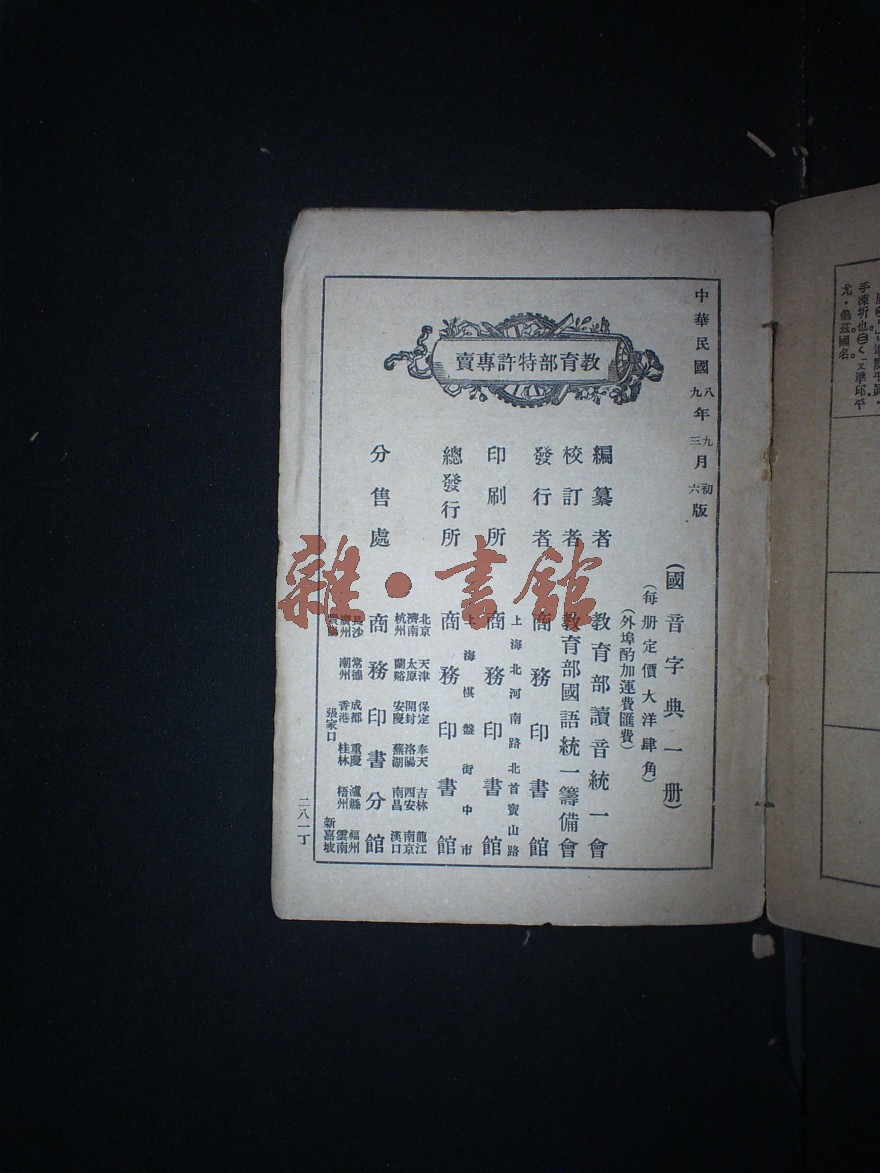 中華民國八年九月初版
九年三月六版
教育部特許專賣
(國音字典一册)
(每册定價大洋肆角)
(外埠酌加運費匯費)
編纂者 教育部讀音統一會
校訂者 教育部國語統一籌備會
發行者 商務印書館
上海北河南路北首寶山路
印刷所 商務印書館
上海棋盤街中市
總發行所 商務印書館
北京 天津 保定 奉天 吉林 龍江
濟南 太原 開封 洛陽 西安 南京
杭州 蘭谿 安慶 蕪湖 南昌 漢口
分售處 商務印書分館
長沙 常德 成都 重慶 瀘縣 福州
廣州 潮州 香港 桂林 梧州 雲南
張家口 新嘉坡
二八一丁
雜·書館
手凍坼也
尤·龜茲國名